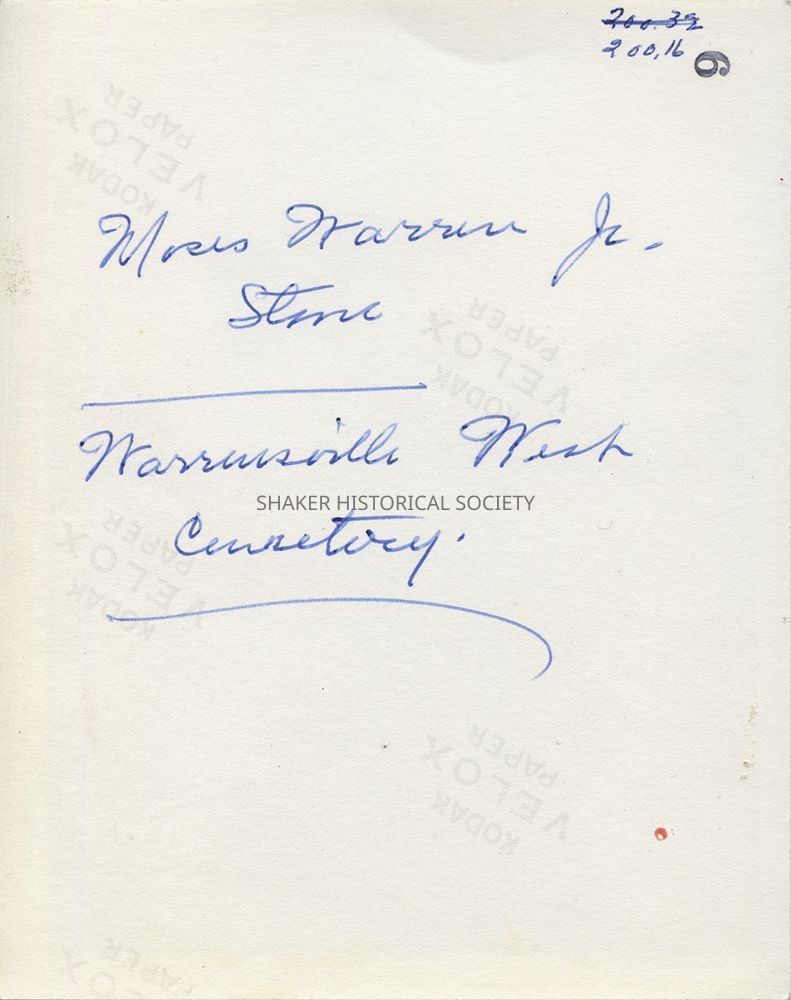 200.32
200,16
9
Moses Warren Jr.
Stone
Warrensville West
SHAKER HISTORICAL SOCIETY
Cemetery.
KODAK
VELOX
PAPER
KODAK
VELOX
PAPER
KODAK
VELOX
PAPER
KODAK
VELOX
PAPER
VELOX
PAPER